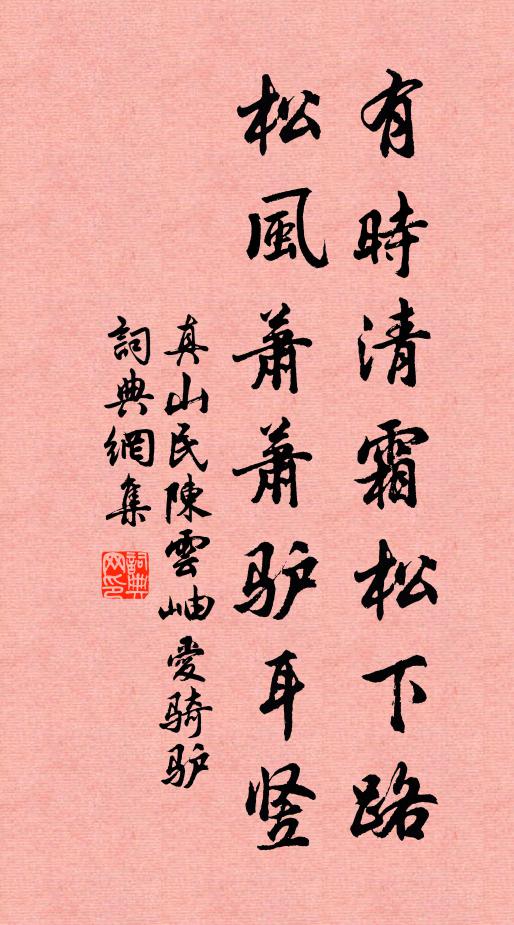 有時清霜松下路
松風蕭蕭驴耳竖
真山民陳雲岫愛騎驴
詞典網集
詞典网印